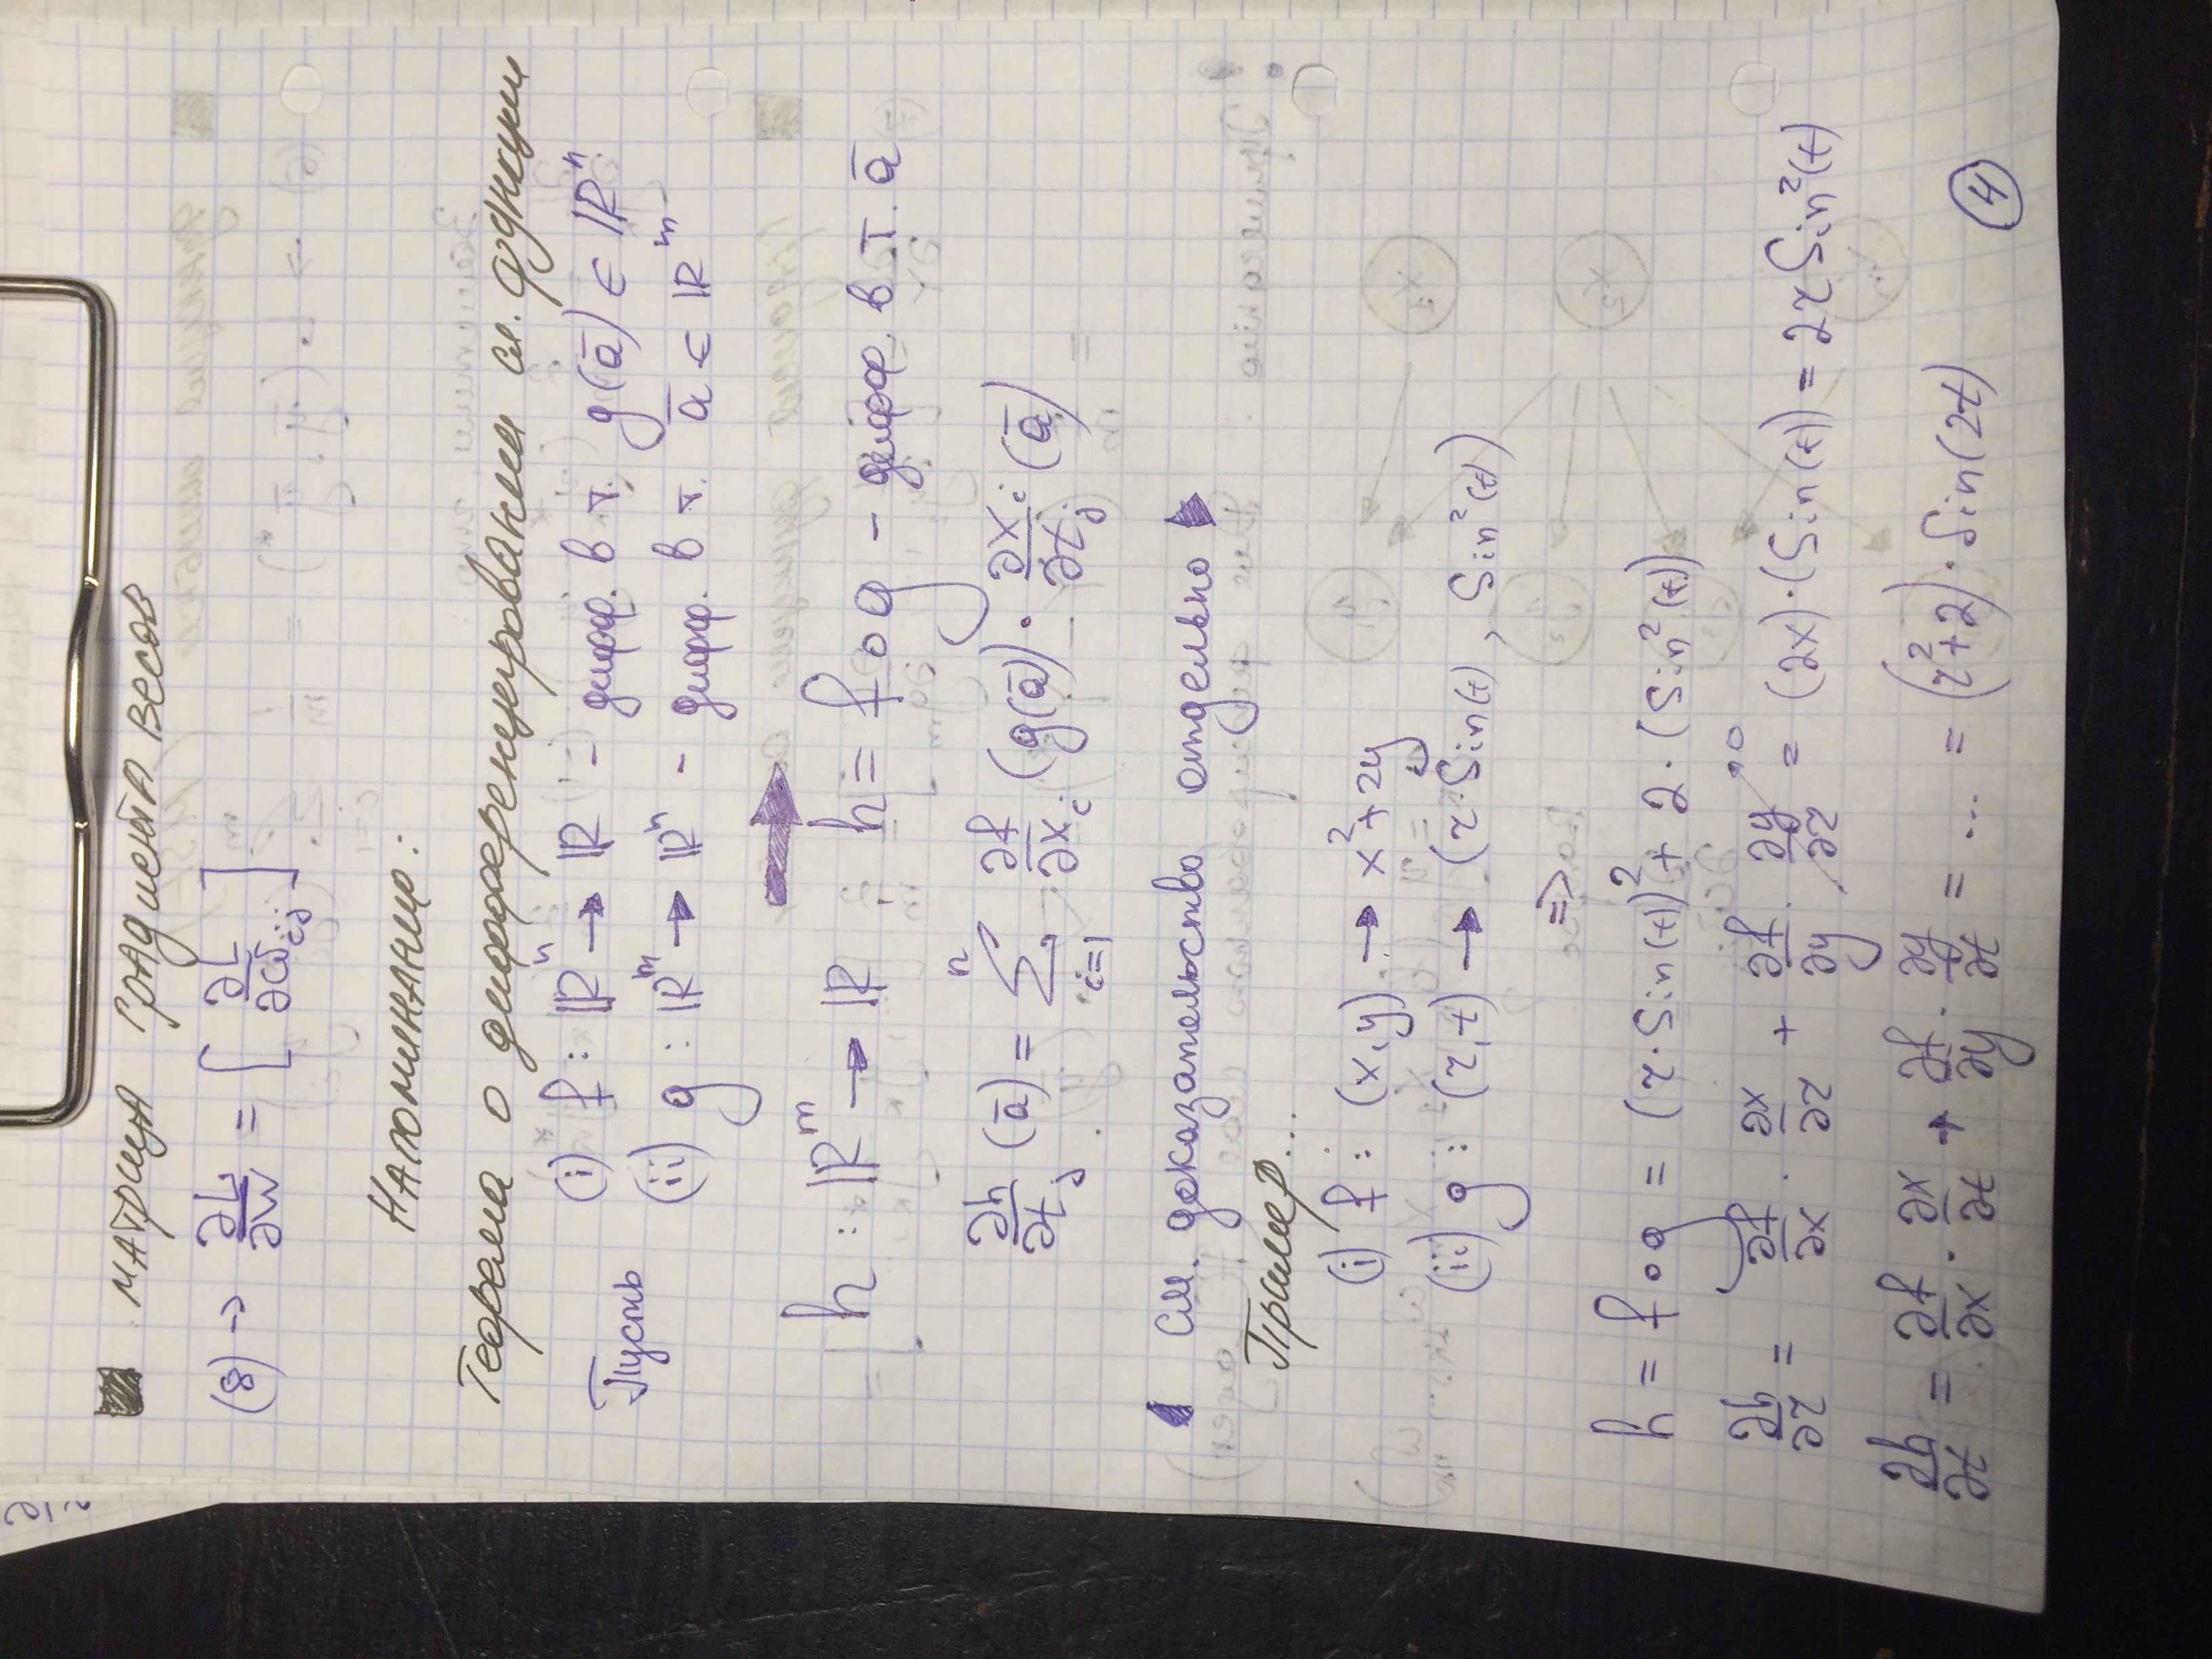 матрица градиента весов
(8) → ∂L/∂W = [ ∂L/∂ω_ij ]
Напоминание:
Теорема о дифференцировании сл. функции
Пусть (i) f : ℝⁿ → ℝ – дифф. в т. g(ā) ∈ ℝⁿ
(ii) g : ℝᵐ → ℝⁿ – дифф. в т. ā ∈ ℝᵐ
→
h : ℝᵐ → ℝ, h = f ∘ g – дифф. в т. ā
∂h/∂t_j (ā) = Σ_{i=1}^{n} ∂f/∂x_i (g(ā)) · ∂x_i/∂t_j (ā)
См. доказательство отдельно
Пример...
(i) f : (x, y) → x² + 2y
(ii) g : (r, t) → (r · Sin(t), Sin²(t))
=>
h = f ∘ g = (r · Sin(t))² + 2 · (Sin²(t))
∂h/∂r = ∂f/∂x · ∂x/∂r + ∂f/∂y · ∂y/∂r → 0 = (2x) · (Sin(t)) = 2r Sin²(t)
∂h/∂t = ∂f/∂x · ∂x/∂t + ∂f/∂y · ∂y/∂t = ... = (r² + 2) · Sin(2t)
4